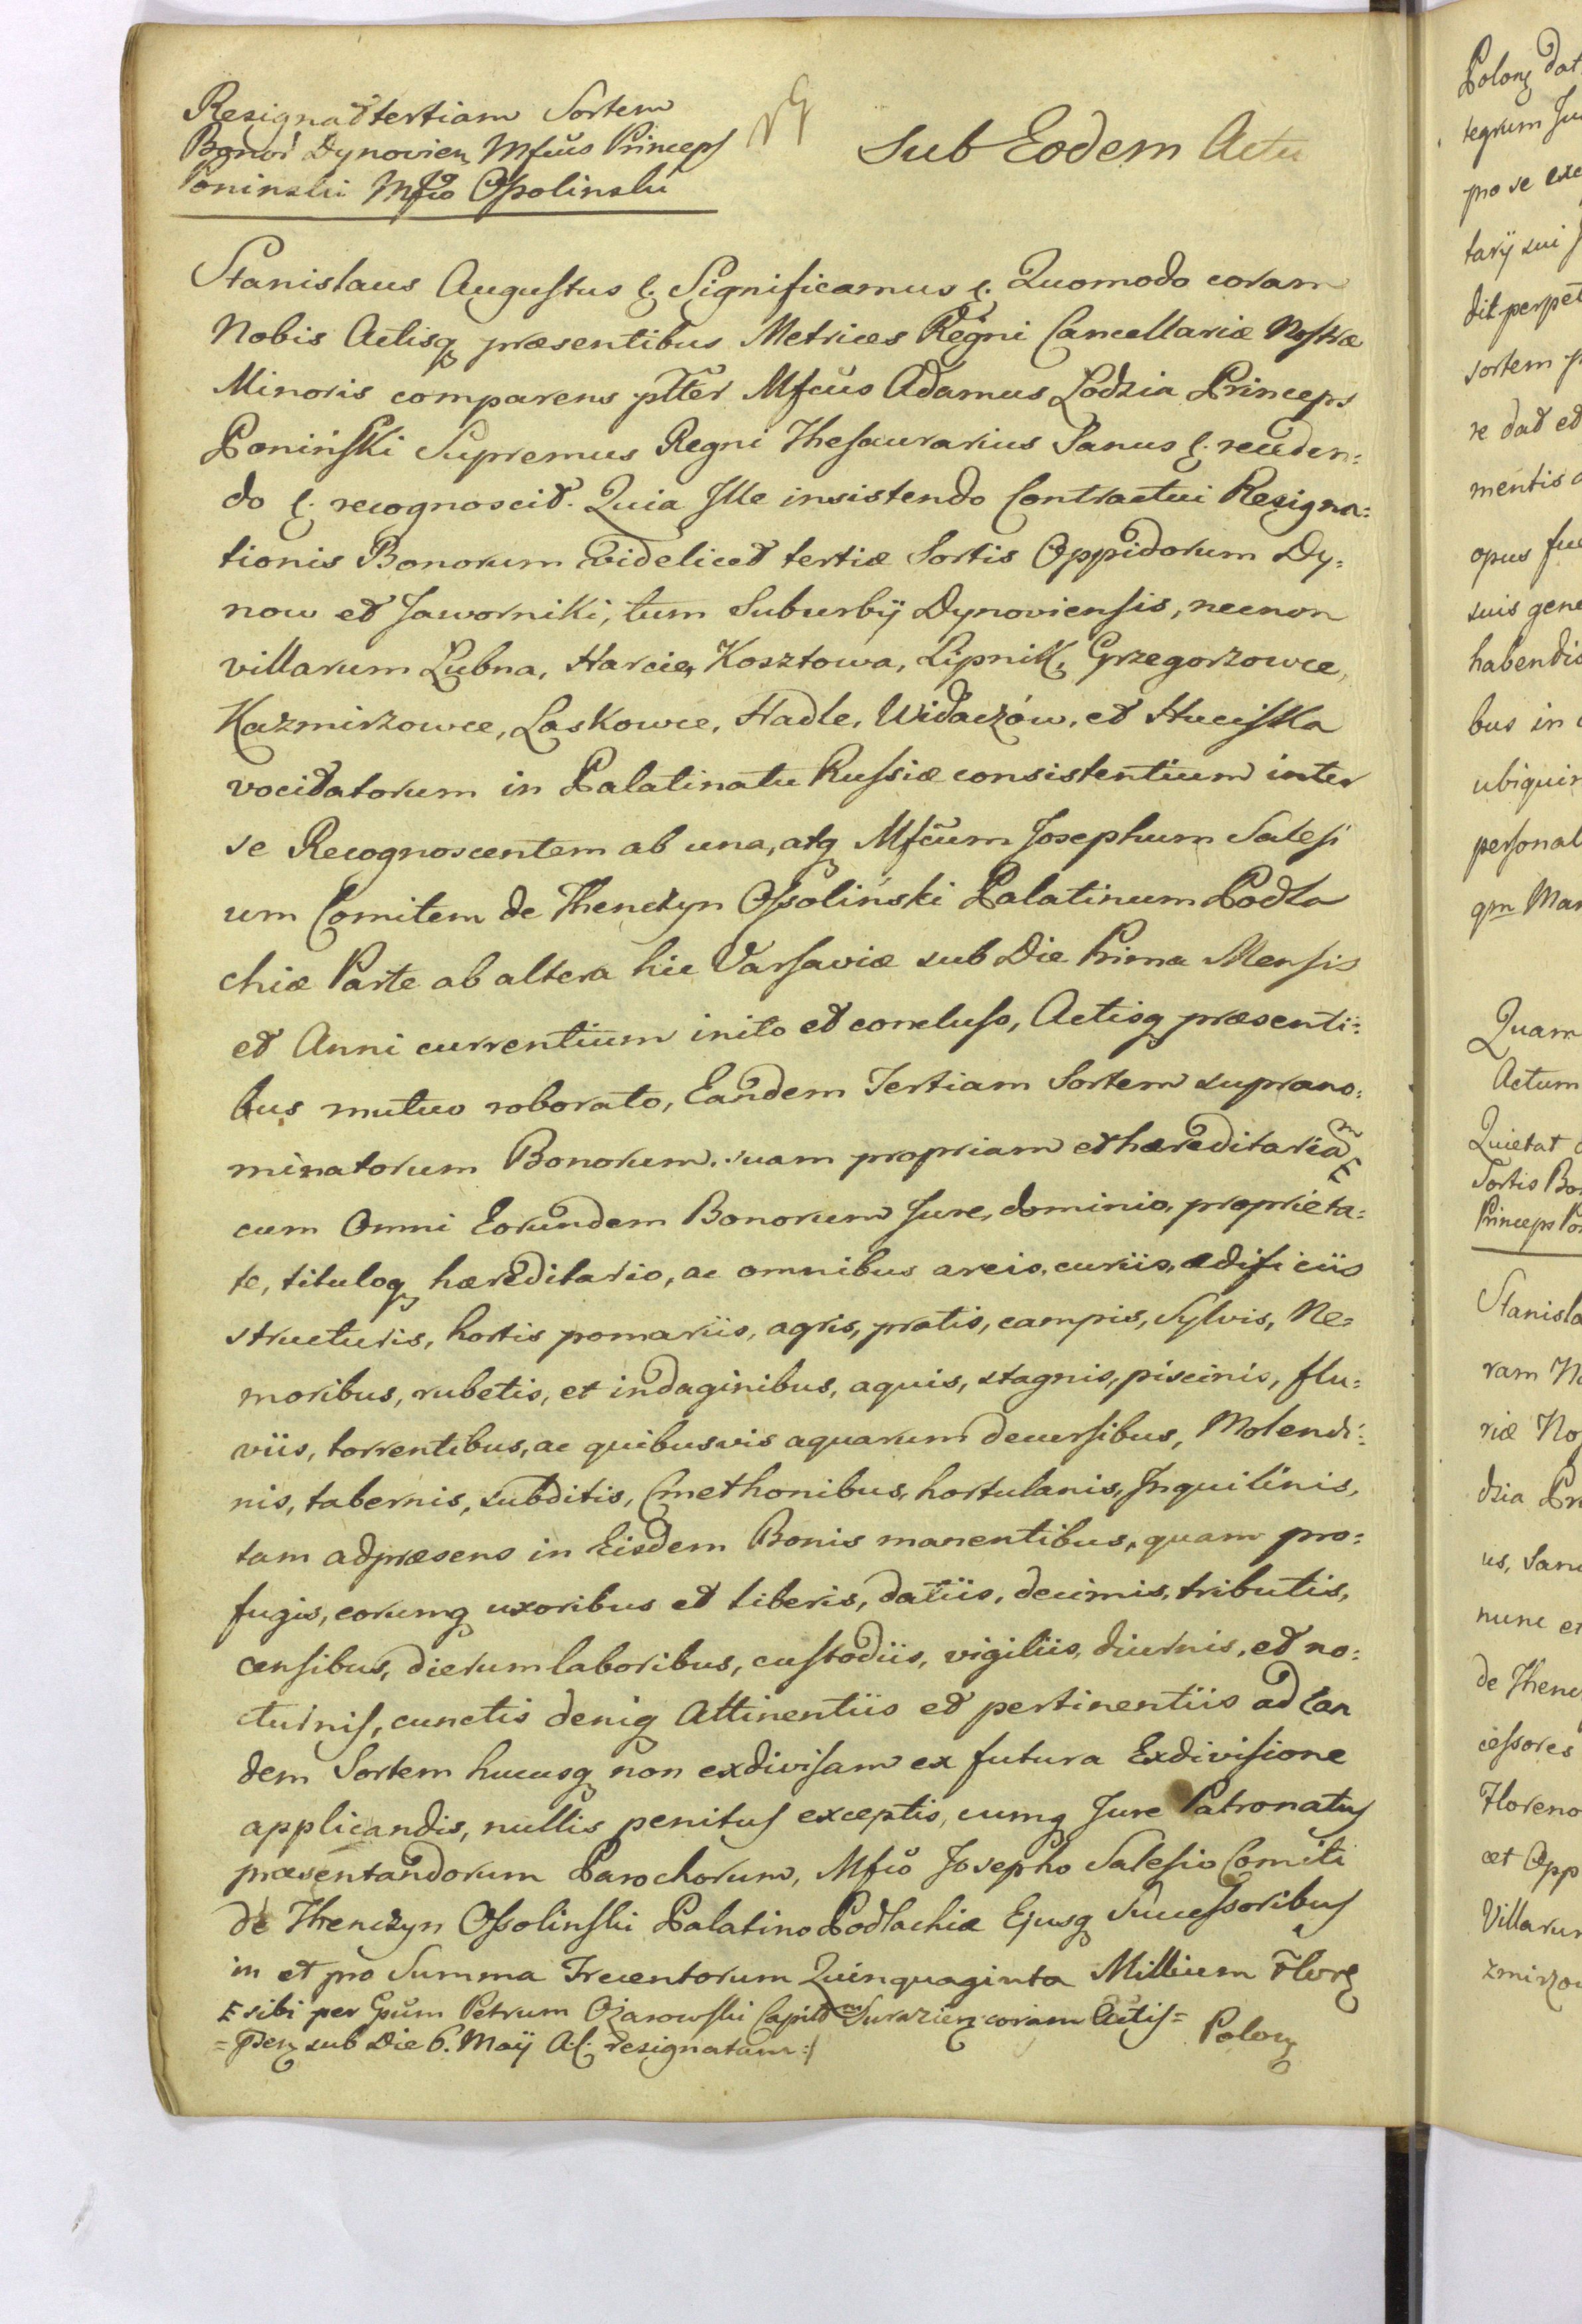 Resignat tertiam Sortem
Bonor Dynovien Mfcus Princeps
Poninski Mfco Ossolinski
Sub Eodem Actu
Stanislaus Augustus &. Significamus &. Quomodo coram
Nobis Actisq præsentibus Metrices Regni Cancellariæ Nostræ
Minoris comparens pltter Mfcus Adamus Lodzia Princeps
Poniński Supremus Regni Thesaurarius Sanus &. receden:
do &. recognoscit. Quia Ille insistendo Contractui Resigna:
tionis Bonorum videlicet tertiæ Sortis Oppidorum Dy:
now et Jaworniki, tum Suburbÿ Dynoviensis, necnon
villarum Lubna, Harcie, Kosztowa, Lipnik, Grzegorzowce,
Kazmirzowce, Laskowce, Hadle, Widaczów, et Huciska
vocitatorum in Palatinatu Russiæ consistentium inter
se Recognoscentem ab una, atq Mfcum Josephum Salesi
um Comitem de Thenczyn Ossoliński Palatinum Podla
chiæ Parte ab altera hic Varsaviæ sub Die Prima Mensis
et Anni currentium inito et concluso, Actisq præsenti:
bus mutuo roborato, Eandem Tertiam Sortem suprano:
minatorum Bonorum suam propriam et hæreditariam E
cum Omni Eorundem Bonorum Jure, dominio, proprieta:
te, tituloq hæreditario, ac omnibus areis, curiis, ædificiis
structuris, hortis pomariis, agris, pratis, campis, Sylvis, Ne:
moribus, rubetis, et indaginibus, aquis, stagnis, piscinis, flu:
viis, torrentibus, ac quibusvis aquarum decursibus, Molendi:
nis, tabernis, subditis, Cmethonibus, hortulanis, Inquilinis,
tam adpræsens in Eisdem Bonis manentibus, quam pro:
fugis, eorumq uxoribus et liberis, datiis, decimis, tributis,
censibus, dierum laboribus, custodiis, vigiliis, diurnis, et no:
cturnis, cunctis deniq Attinentiis et pertinentiis ad Ean
dem Sortem hucusq non exdivisam ex futura Exdivisione
applicandis, nullis penitus exceptis, cumq Jure Patronatus
præsentandorum Parochorum, Mfco Josepho Salesio Comiti
de Thenczyn Ossolinski Palatino Podlachiæ Ejusq Successoribus
in et pro Summa Trecentorum Quinquaginta Millium Flor
E sibi per Gsum Petrum Ożarowski Capit Surazien coram Actis=
=Pden sub Die 6. Maÿ A.C. resignatam:/
Polon
Polon dat
tegrum Ju
pro se exc
tarÿ sui
dit perpet
sortem
re dat et
mentis
opus fue
suis gene
habendis
bus in
ubiquin
personal
qm Man
Quam
Actum
Quietat
Sortis Bo
Princeps Po
Stanisla
ram No
riæ No
dzia Pr
us, San
nunc et
de Thenc
cessores
Floreno
cet Opp
Villarum
zmirzow